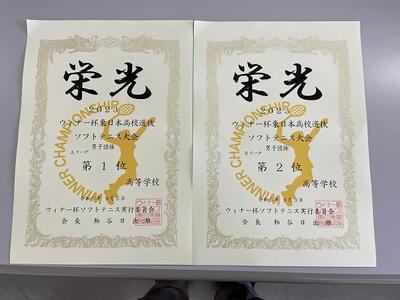 栄光
2023
ウィナー杯東日本高校選抜
ソフトテニス大会
男子団体
Aリーグ
第1位
高等学校
ウィナー杯ソフトテニス実行委員会
会長 粕谷日出雄
WINNER CHAMPIONSHIP
栄光
2023
ウィナー杯東日本高校選抜
ソフトテニス大会
男子団体
Bリーグ
第2位
高等学校
ウィナー杯ソフトテニス実行委員会
会長 粕谷日出雄
WINNER CHAMPIONSHIP